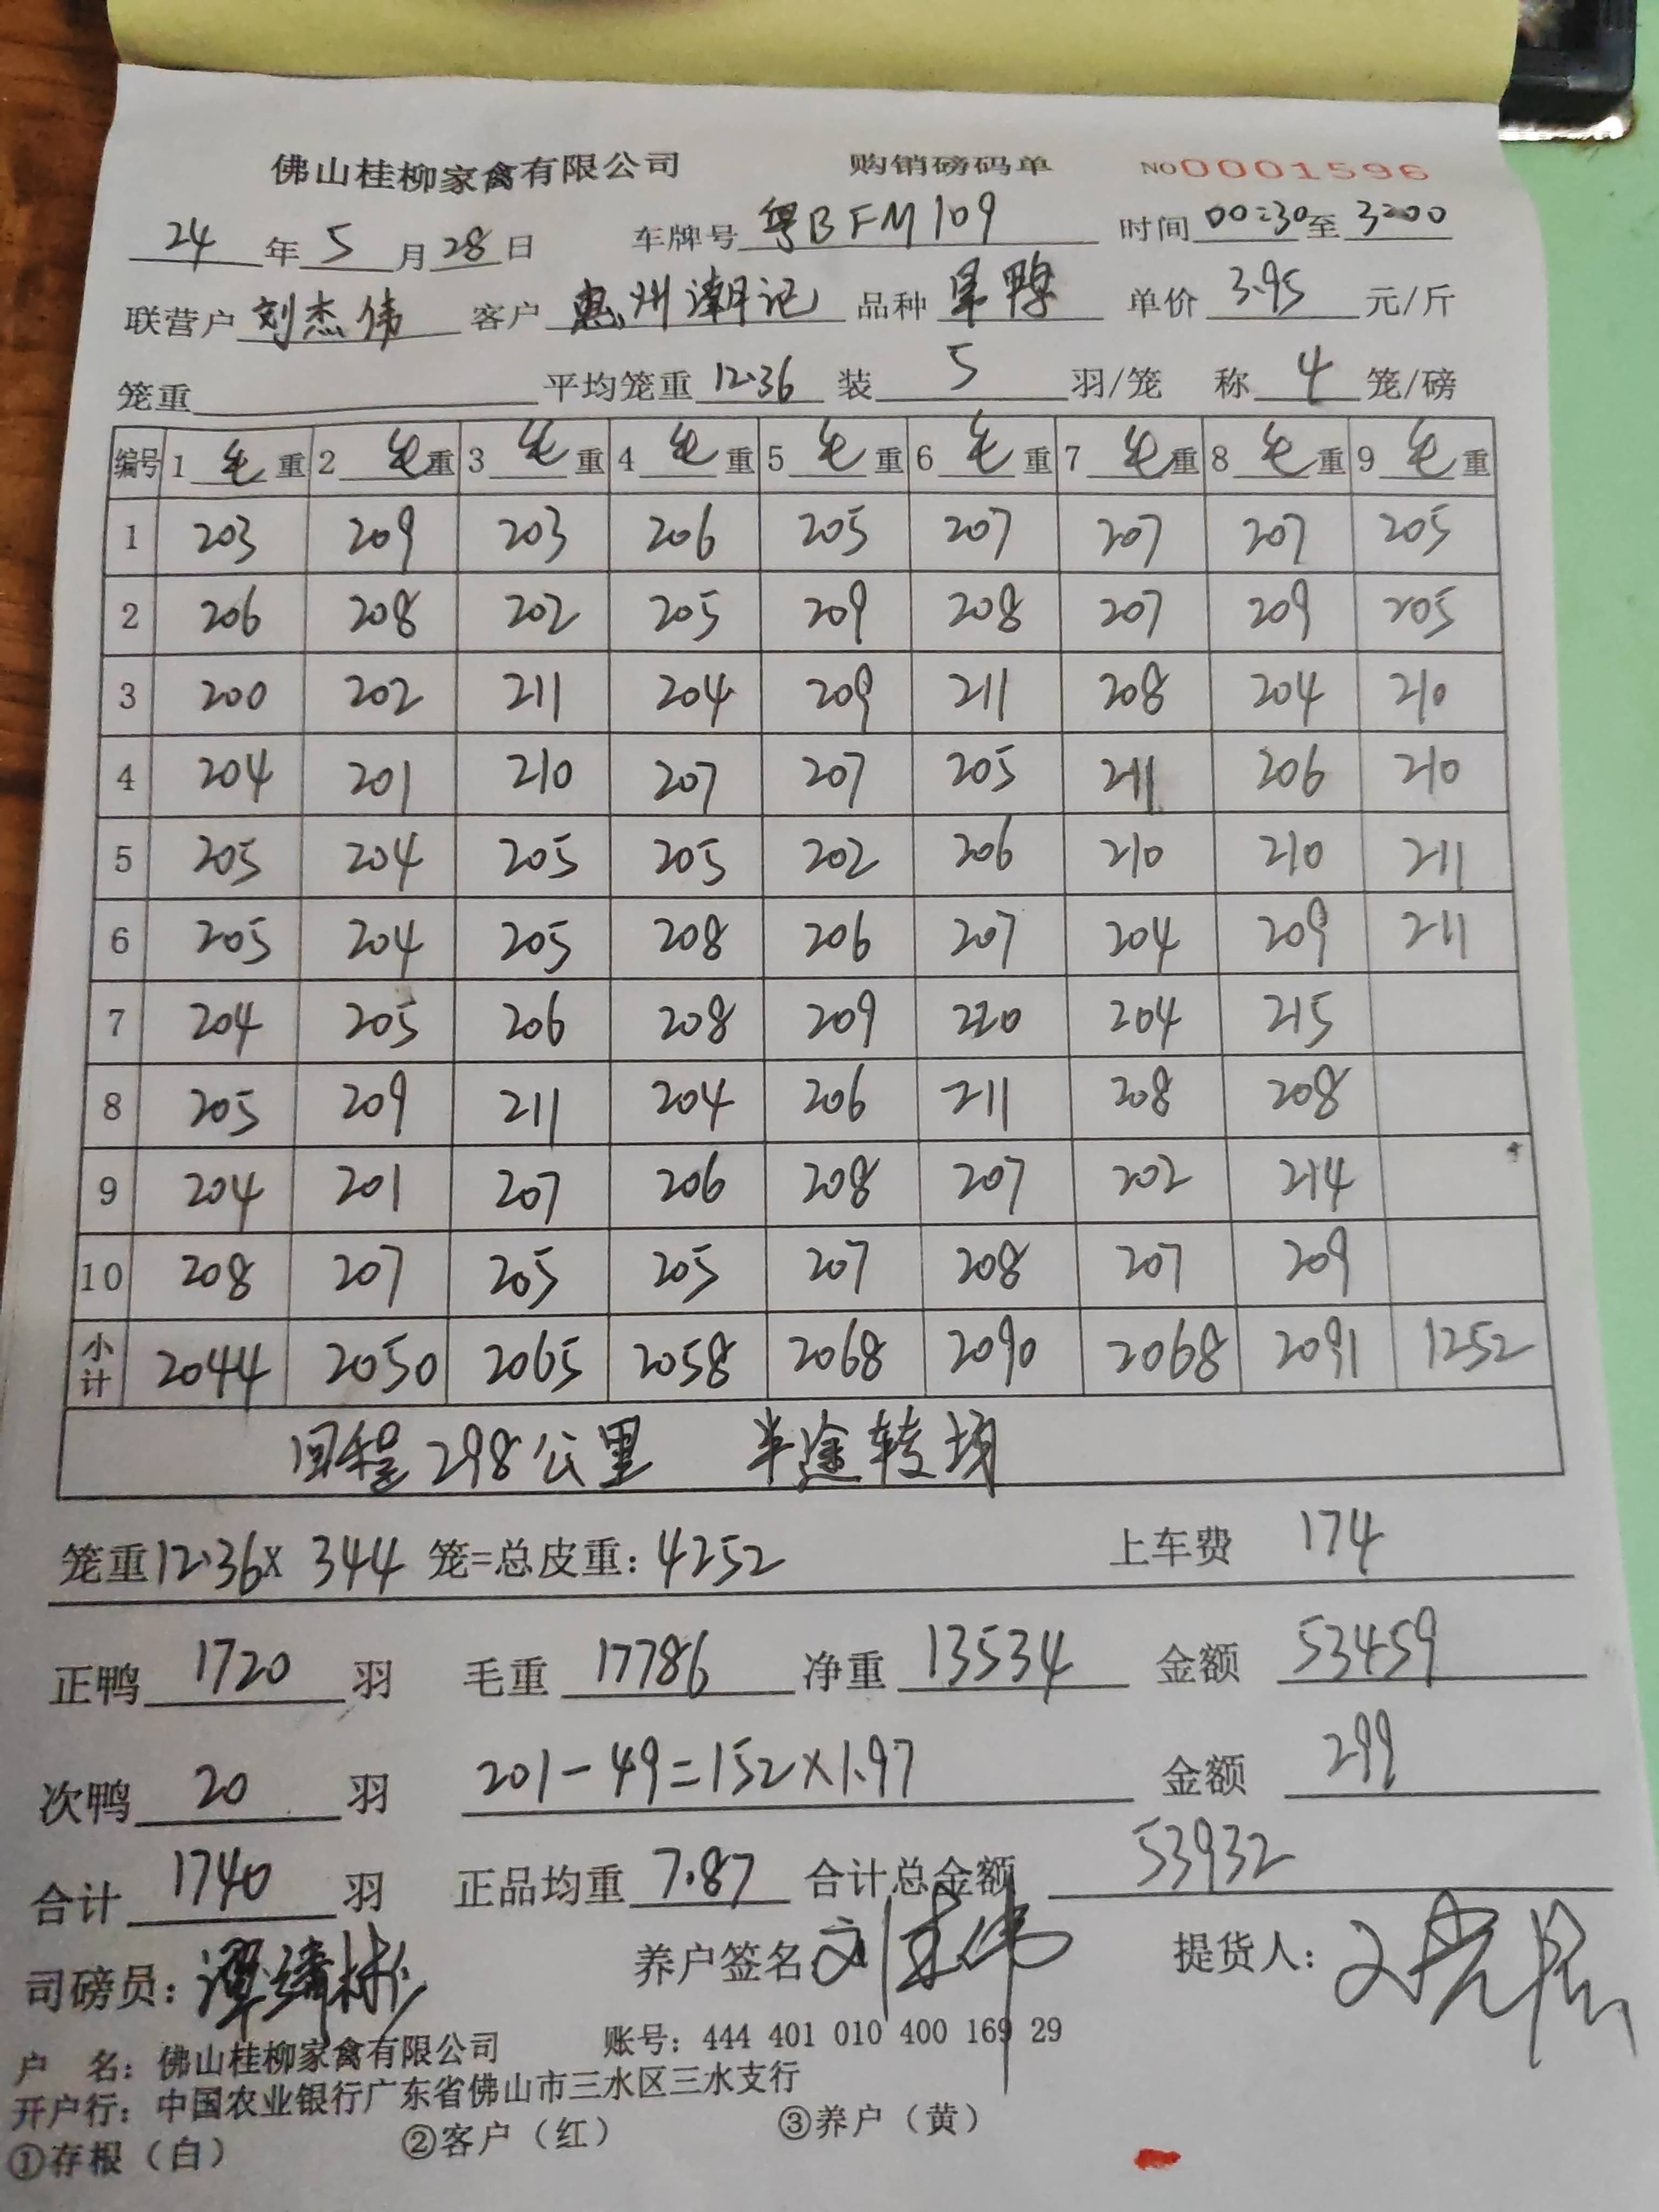 佛山桂柳家禽有限公司 购销磅码单 No 0001596
24 年 5 月 28 日 车牌号 粤BFM109 时间 00:30 至 3:00
联营户 刘杰伟 客户 惠州潮记 品种 旱鸭 单价 3.95 元/斤
笼重 平均笼重 12.36 装 5 羽/笼 称 4 笼/磅
编号 1 毛 重 2 毛 重 3 毛 重 4 毛 重 5 毛 重 6 毛 重 7 毛 重 8 毛 重 9 毛 重
1 203 209 203 206 205 207 207 207 205
2 206 208 202 205 209 208 207 209 205
3 200 202 211 204 209 211 208 204 210
4 204 201 210 207 207 205 211 206 210
5 205 204 205 205 202 206 210 210 211
6 205 204 205 208 206 207 204 209 211
7 204 205 206 208 209 220 204 215
8 205 209 211 204 206 211 208 208
9 204 201 207 206 208 207 202 214
10 208 207 205 205 207 208 207 209
小计 2044 2050 2065 2058 2068 2090 2068 2091 1252
回程298公里 半途转场
笼重12.36X 344 笼=总皮重: 4252 上车费 174
正鸭 1720 羽 毛重 17786 净重 13534 金额 53459
次鸭 20 羽 201-49=152×1.97 金额 299
合计 1740 羽 正品均重 7.87 合计总金额 53932
司磅员: 养户签名 刘杰伟 提货人:
户 名: 佛山桂柳家禽有限公司 账号: 444 401 010 400 169 29
开户行: 中国农业银行广东省佛山市三水区三水支行
①存根（白） ②客户（红） ③养户（黄）